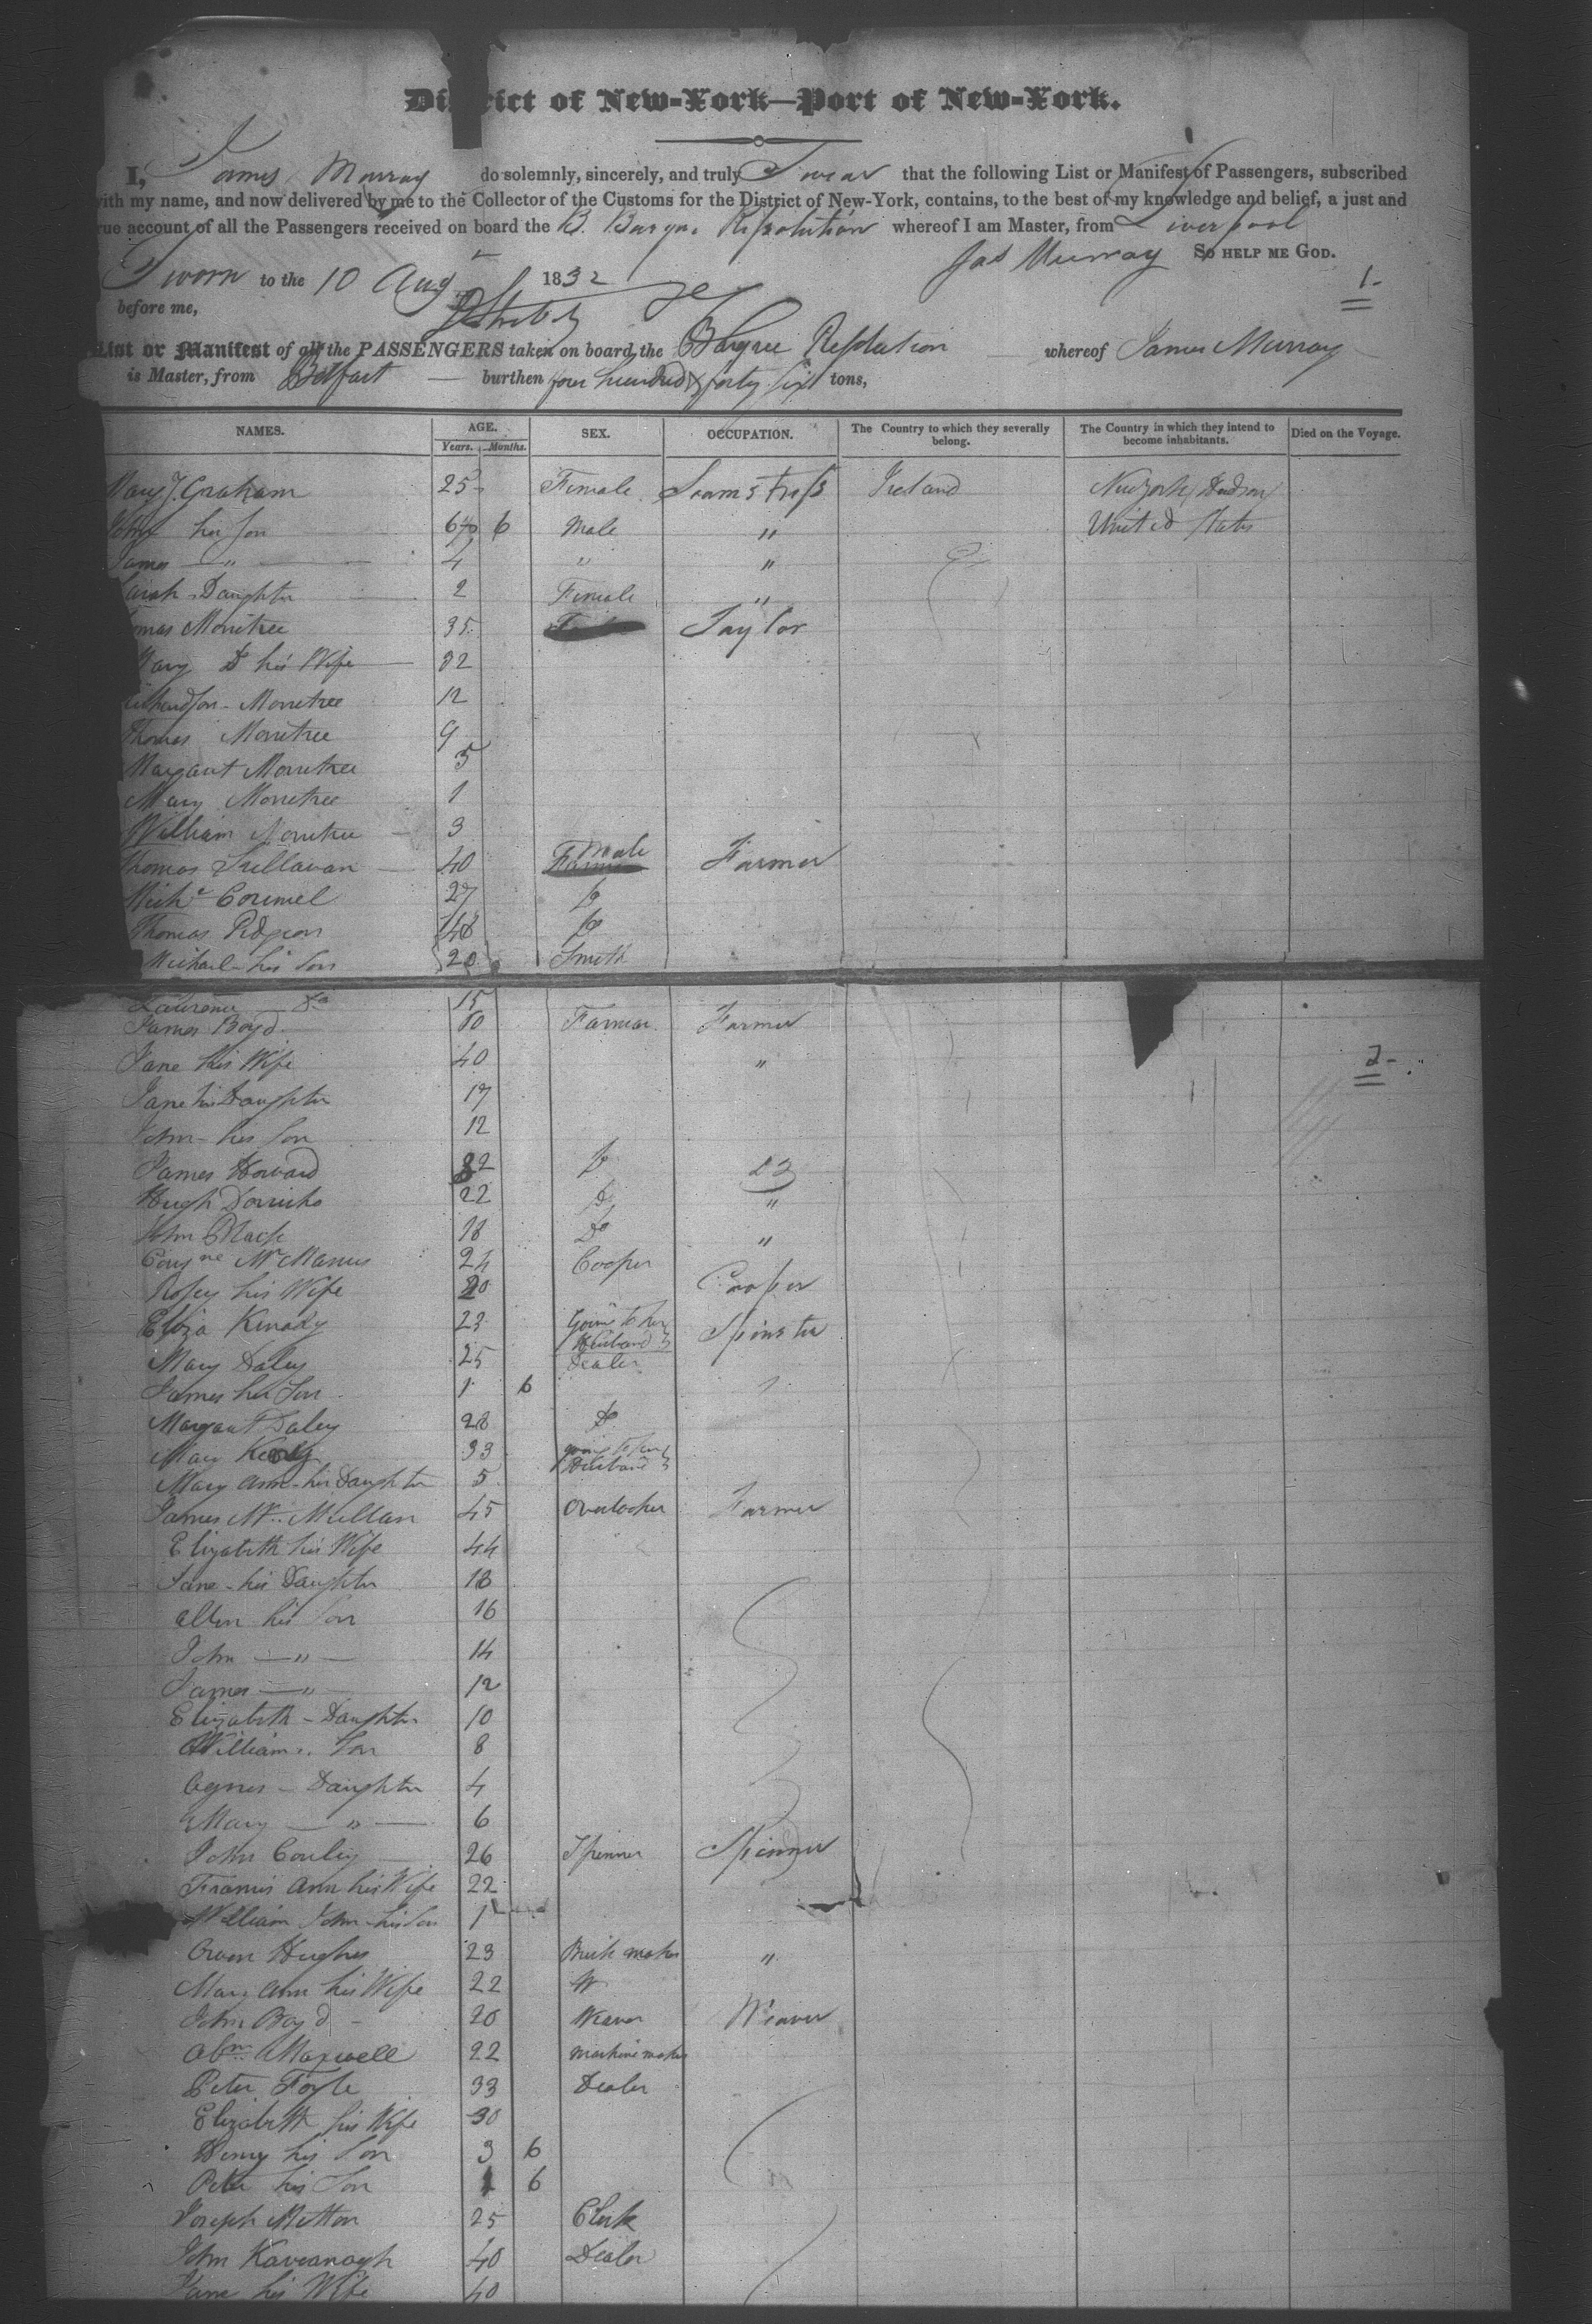 District of New-York—Port of New-York.
I, James Murray do solemnly, sincerely, and truly Swear that the following List or Manifest of Passengers, subscribed
with my name, and now delivered by me to the Collector of the Customs for the District of New-York, contains, to the best of my knowledge and belief, a just and
true account of all the Passengers received on board the B. Barque Resolution whereof I am Master, from Liverpool
Jas Murray SO HELP ME GOD.
Sworn to the 10 Aug 1832
before me,
1-
List or Manifest of all the PASSENGERS taken on board the Barque Resolution whereof James Murray
is Master, from Belfast burthen four hundred & forty six tons,
NAMES. AGE. SEX. OCCUPATION. The Country to which they severally belong. The Country in which they intend to become inhabitants. Died on the Voyage.
Years. Months.
Mary J. Graham 25 Female Seamstress Ireland New York
her son 6 Male " United States
James " 4 " "
Sarah Daughter 2 Female "
Thomas Monetree 35 Taylor
Mary Do his Wife 32
Monetree 12
Thomas Monetree 9
Margaret Monetree 5
Mary Monetree 1
William Monetree 3
Thomas Sullavan 40 Male Farmer
Michl 27 Do
Thomas Pidgeon 48 Do
Michael his Son 20 Smith
Lawrence Do 15
James Boyd 60 Farmer Farmer
Jane his Wife 40 "
Jane his Daughter 17
John his Son 12
2-
James Howard 32 Do
Hugh 22 Do "
John Black 18 Do "
McManus 24 Cooper
Rosey his Wife 20 Cooper
Eliza Kenady 23 Going to her Husband Spinster
Mary Daley 25 Dealer
James her Son 1 6
Margaret Daley 28 Do
Mary 33 going to her Husband
Mary Ann her Daughter 5
James McMullan 45 Overlooker Farmer
Elizabeth his Wife 44
Jane his Daughter 18
Allen his Son 16
John " 14
James " 12
Elizabeth Daughter 10
William Son 8
Agnes Daughter 4
Mary " 6
John Conley 26 Spinner Spinner
Francis Ann his Wife 22
William John his Son 1
Owen Hughes 23 Brick maker "
Mary Ann his Wife 22
John Boyd 20 Weaver Weaver
Abm Maxwell 22 Machine maker
Peter Foyle 33 Dealer
Elizabeth his Wife 30
Henry his Son 3 6
Peter his Son 1 6
Joseph Mitton 25 Clerk
John Kavanagh 40 Dealer
Jane his Wife 40